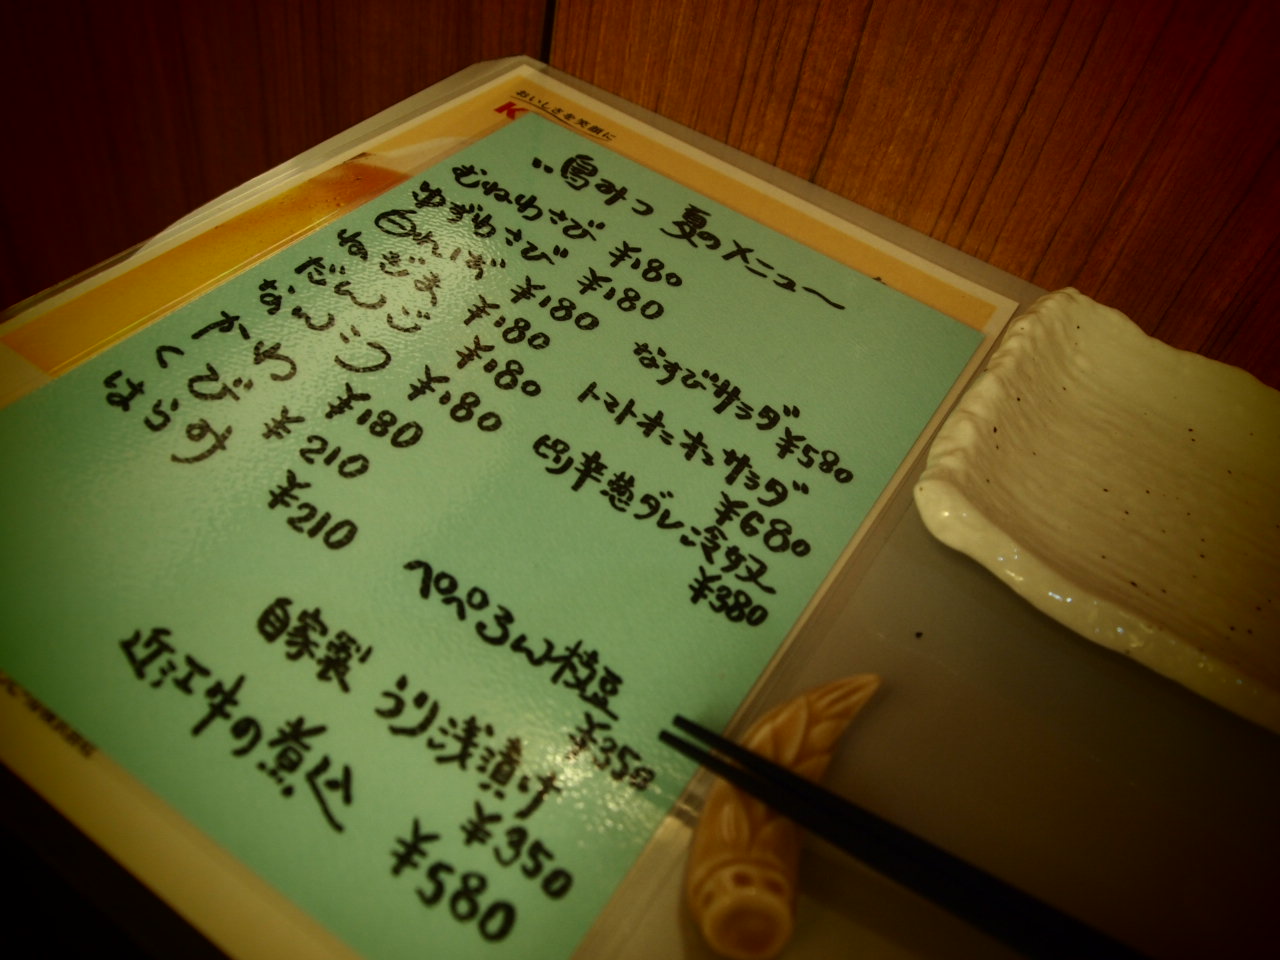 おいしさを笑顔に
K
鳥みつ 夏のメニュー
むねわさび ¥180
ゆずわさび ¥180
¥180
ねぎま ¥180
だんご ¥180
なんこつ ¥180
かわ ¥180
くび ¥210
はらみ ¥210
なすびサラダ ¥580
トマトオニオンサラダ
¥680
ピリ辛葱ダレ冷奴
¥380
ペペろん枝豆
¥350
自家製 うり浅漬け
¥350
近江牛の煮込
¥580